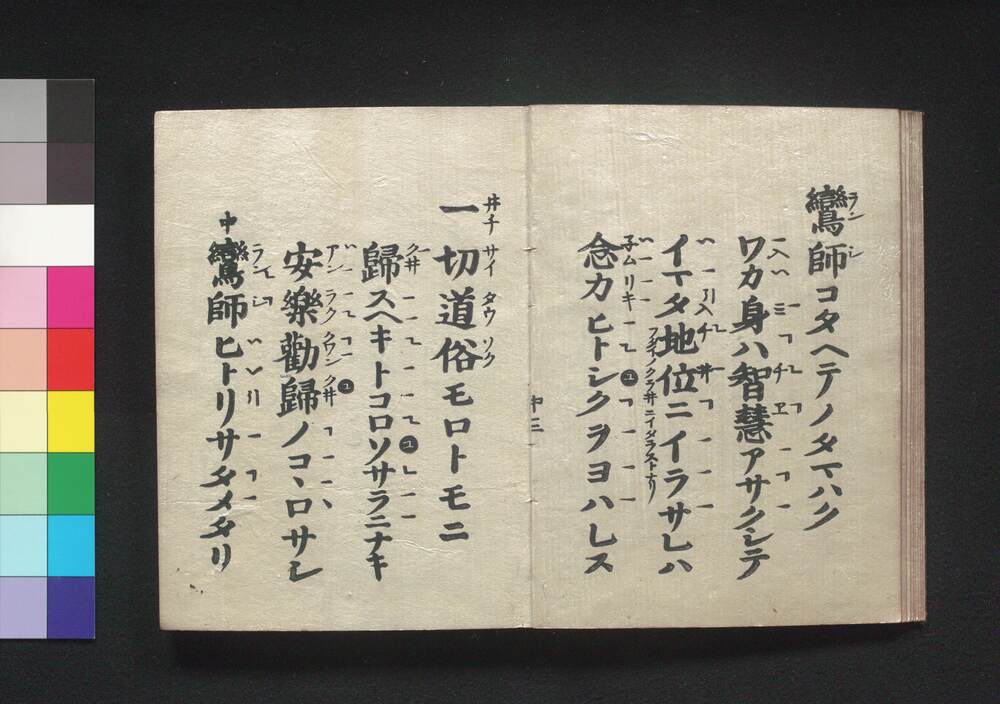 鸞師コタヘテノタマハク
ワカ身ハ智慧アサクシテ
イマタ地位ニイラサレハ
念力ヒトシクヲヨハレス
中三
一切道俗モロトモニ
歸スヘキトコロソサラニナキ
安樂勸歸ノコヽロサシ
鸞師ヒトリサタメタリ